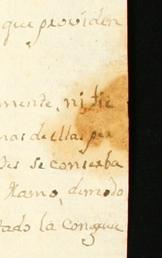 que providen
mente, ni tie
nas de ellas per
des se conserba
Ramo, demodo
tado la congrue